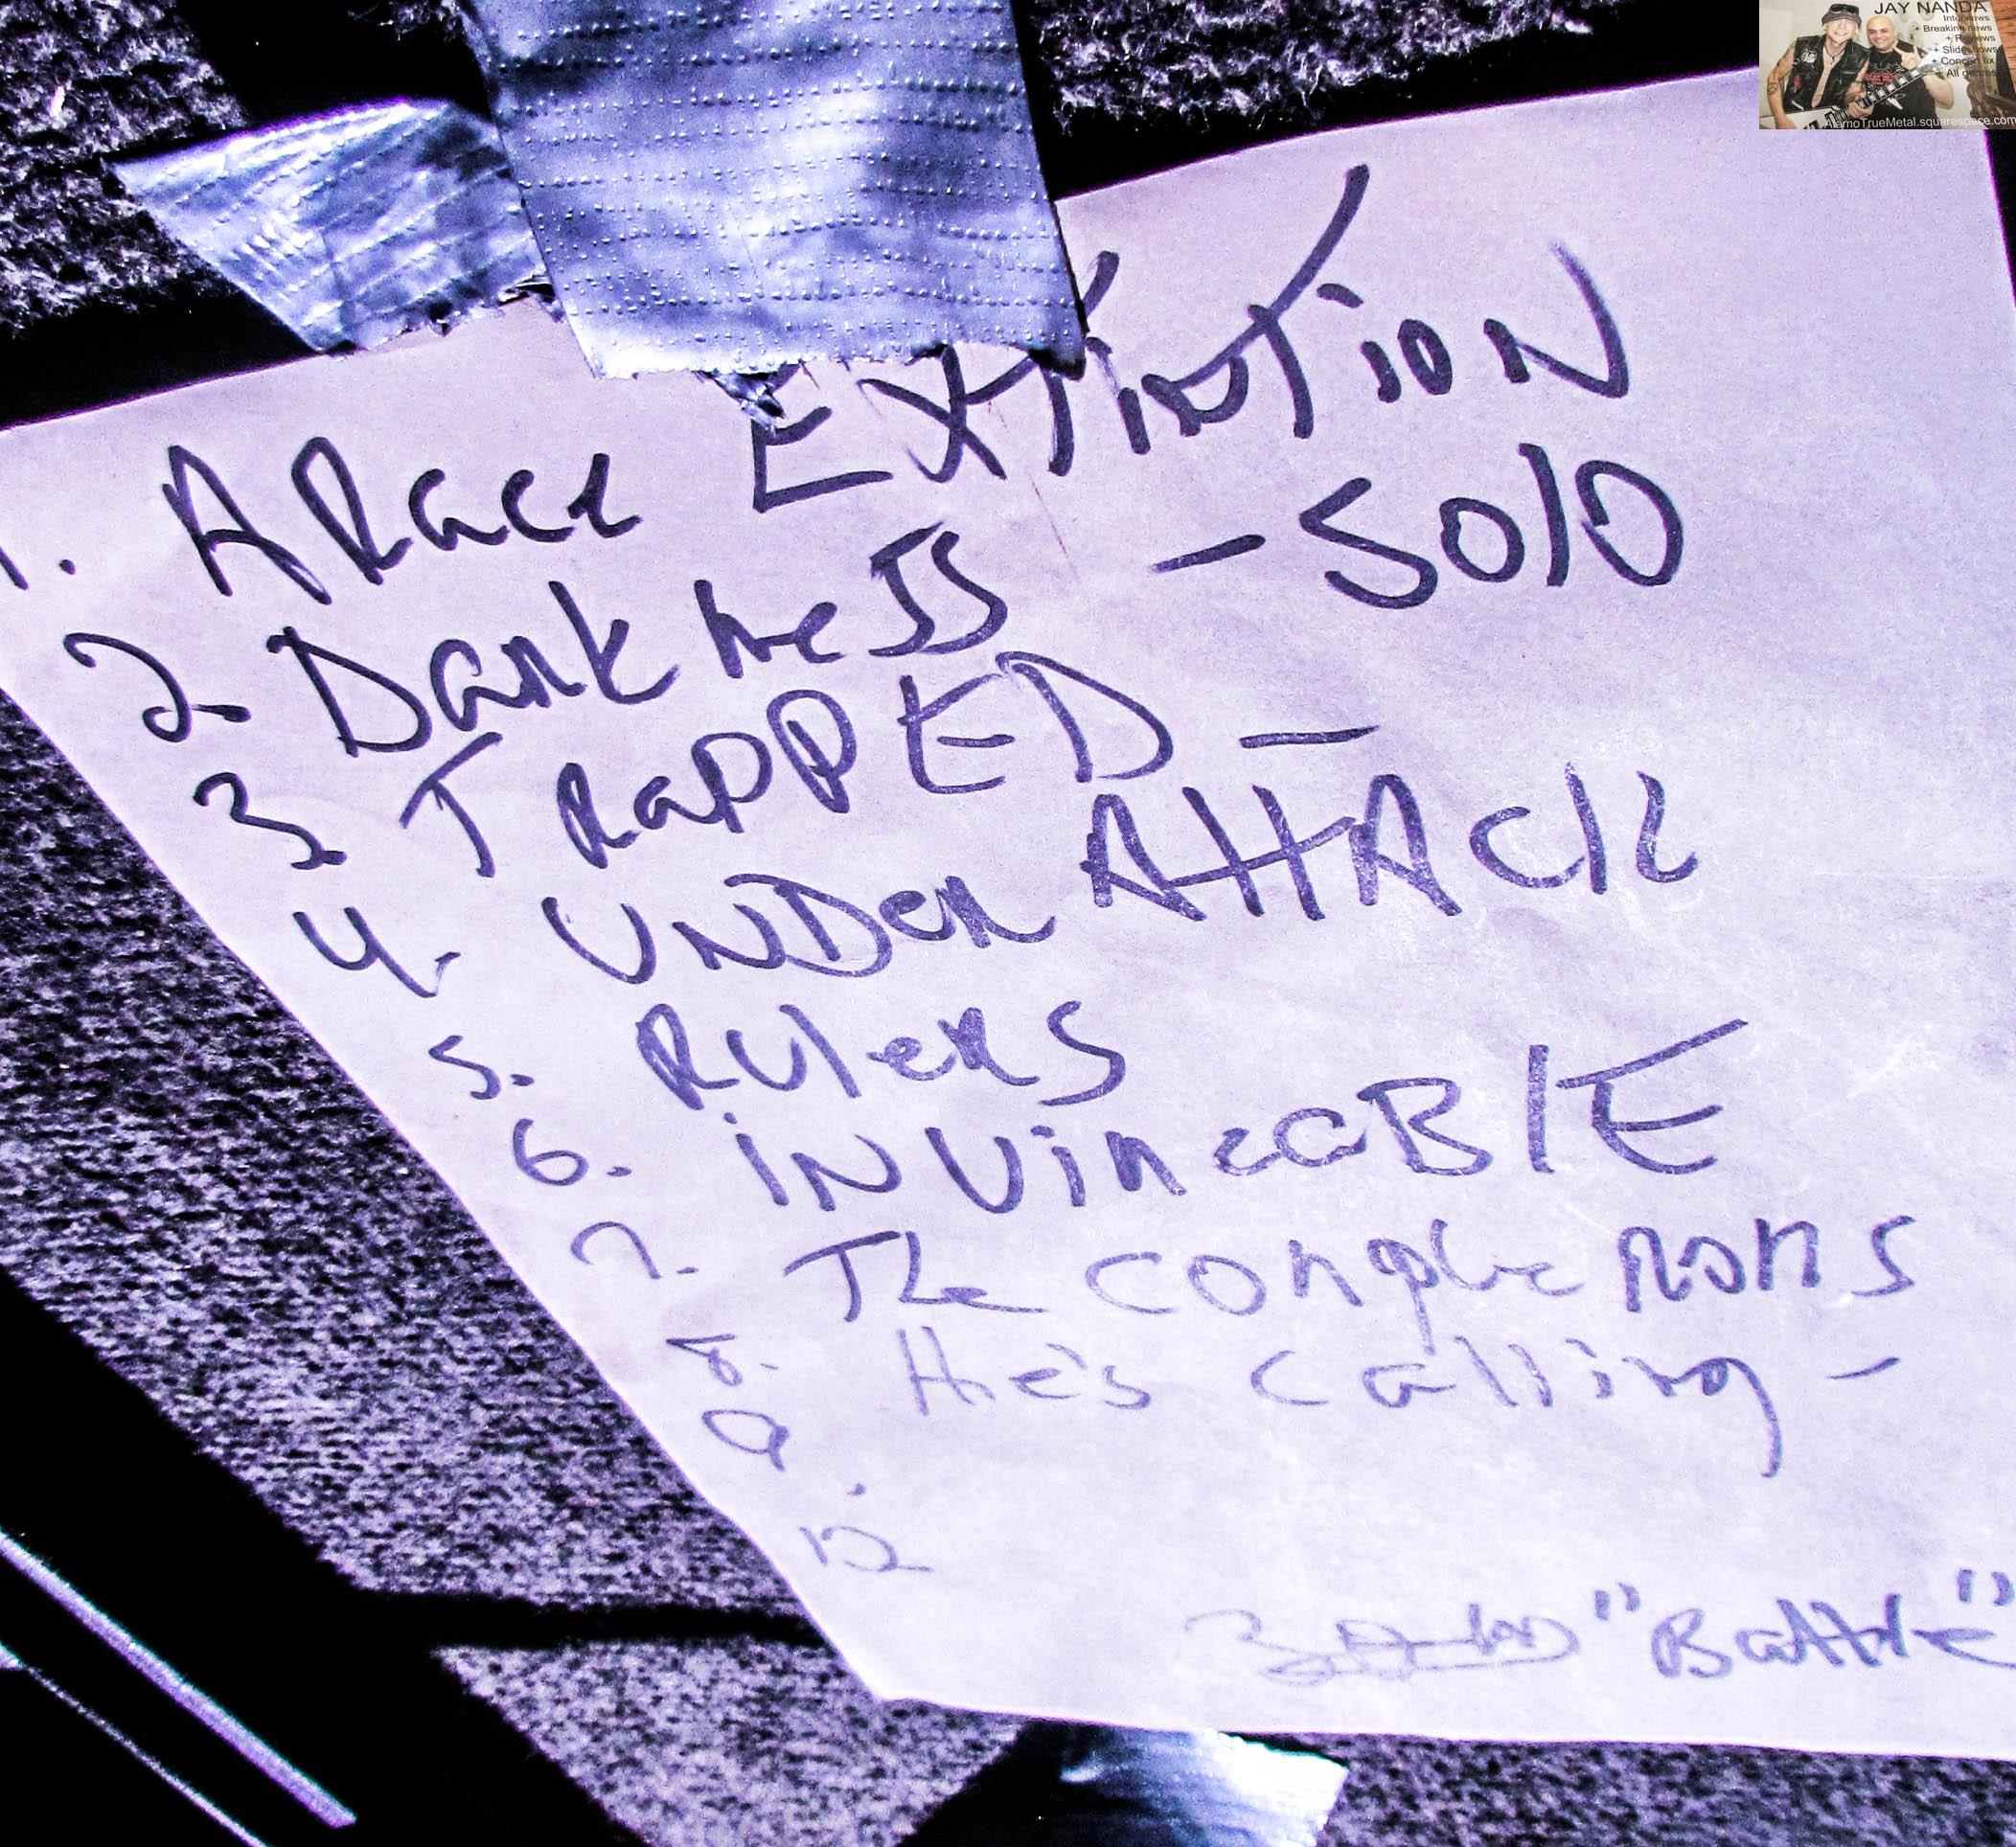 JAY NANDA
Interviews
+ Breaking news
+ Reviews
+ Slideshows
+ Concert fix
+ All genres
AlamoTrueMetal.squarespace.com
1. A Race EXTinction
2. Darkness - Solo
3 TRaPPED -
4. UNDer ATTACK
5. RUlerS
6. iNVincaBlE
7. The conquerors
8. He's calling -
9.
10
"Battle"